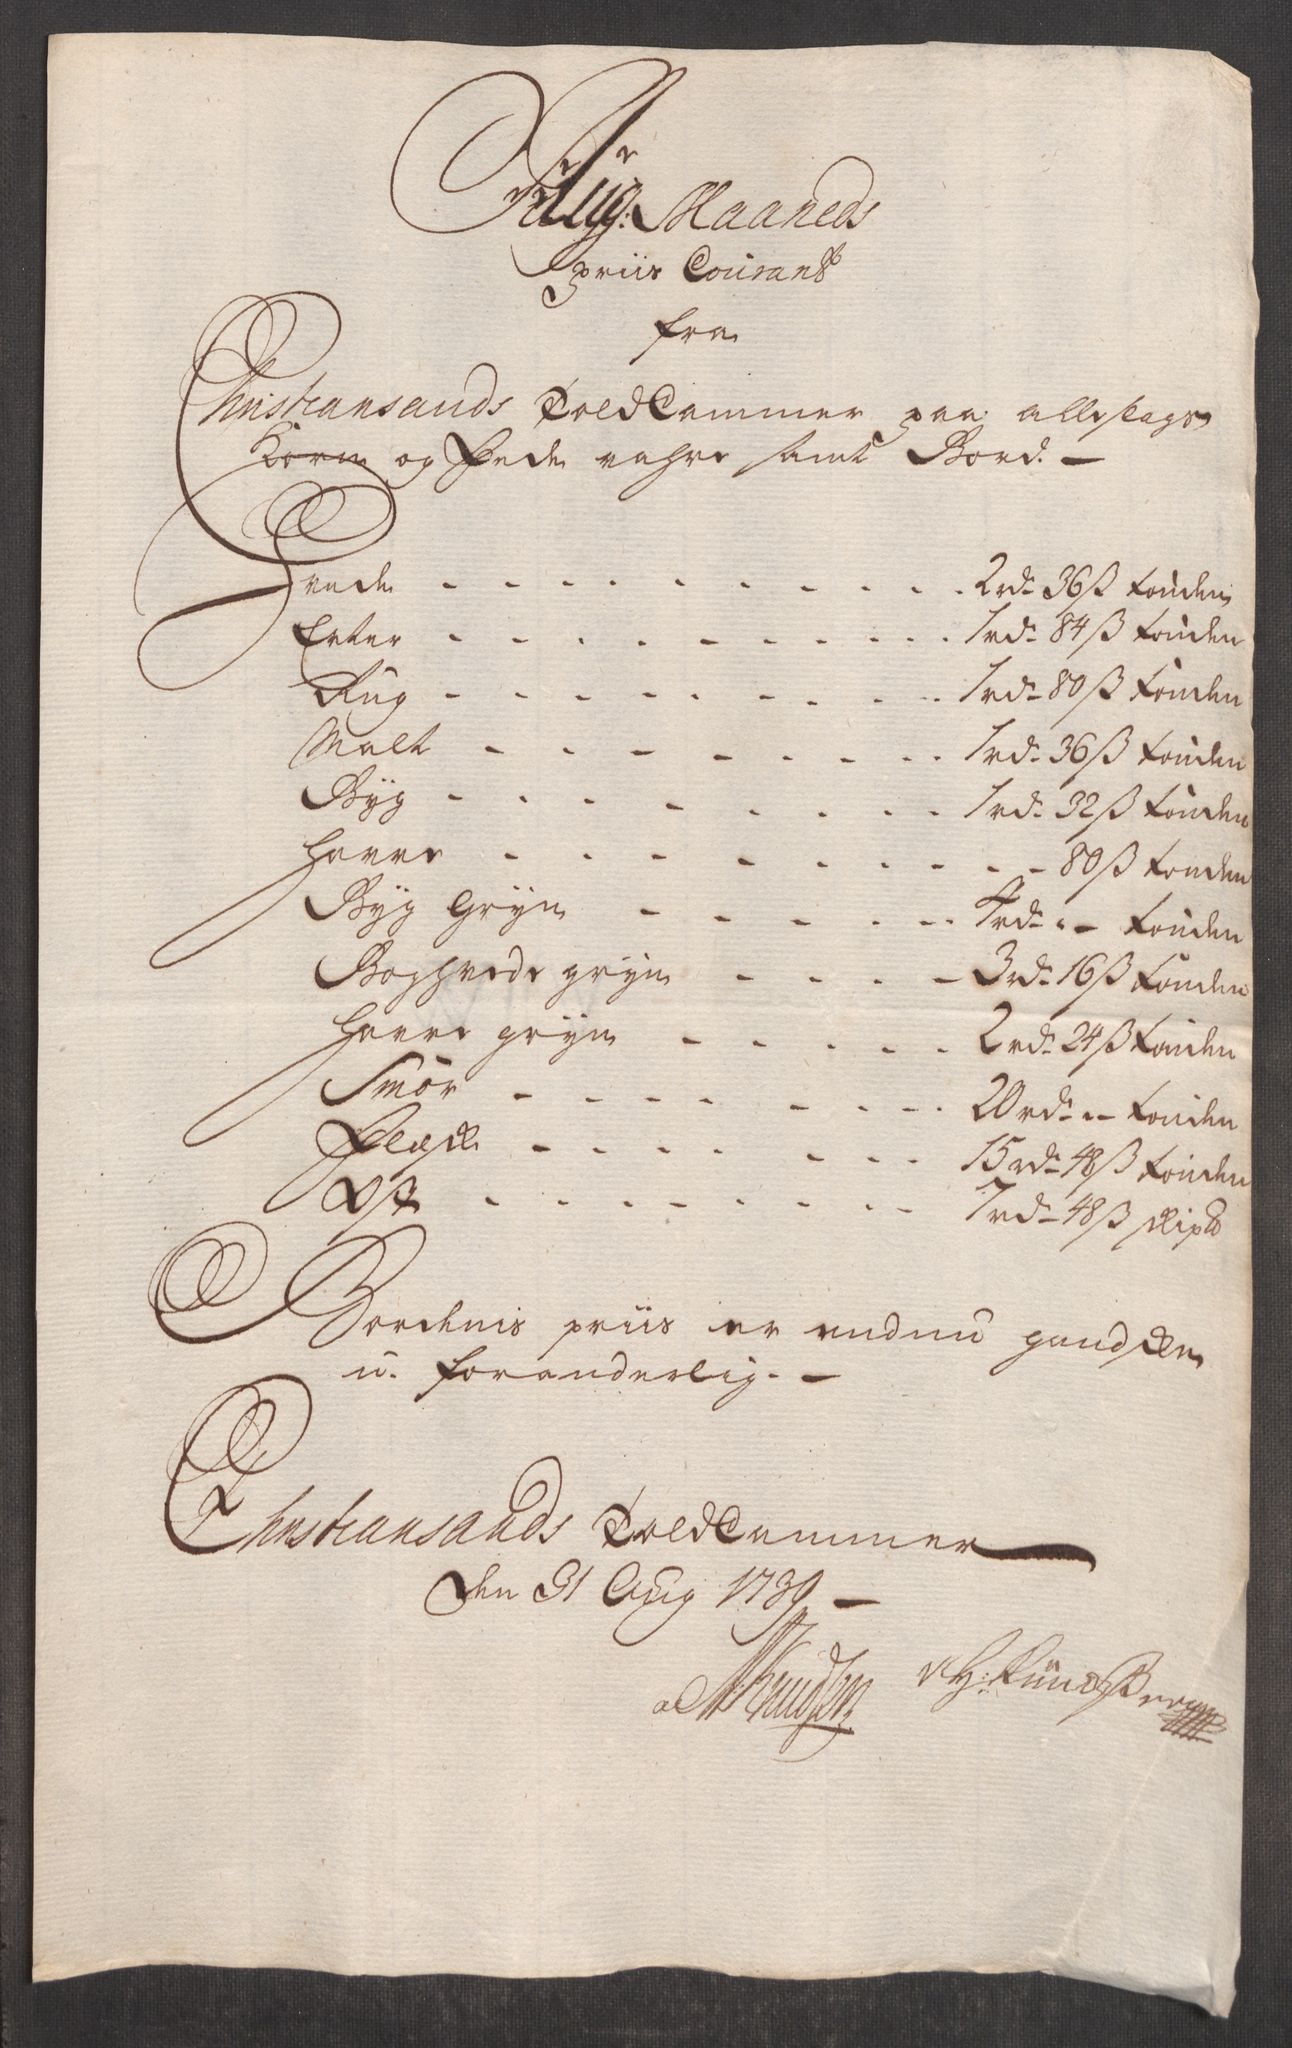 Aug: Maaneds
priis Courant
fra
Christiansands Told Cammer paa alle slags
Korn og Fede vahre samt Bord. —
Hvede - - - - - - - - - - 2 rd: 36 ß tønden
Erter - - - - - - - - - - 1 rd: 84 ß tønden
Rug - - - - - - - - - 1 rd: 80 ß tønden
Malt - - - - - - - - - 1 rd: 36 ß tønden
Byg - - - - - - - - - 1 rd: 32 ß tønden
Havre - - - - - - - - - - 80 ß tønden
Byg Gryn - - - - - - - 4 rd: - - tønden
Boghvede gryn - - - - - 3 rd: 16 ß tønden
Havre gryn - - - - - 2 rd: 24 ß tønden
Smør - - - - - - - - 20 rd: - - tønden
Flesk - - - - - - - - 15 rd: 48 ß tønden
Ost - - - - - - - - - 7 rd: 48 ß skip℔
Bordenis priis er endnu gandske
u-foranderlig. —
Christiansands Told Cammer
den 31 Aug 1739 —
Knudsen